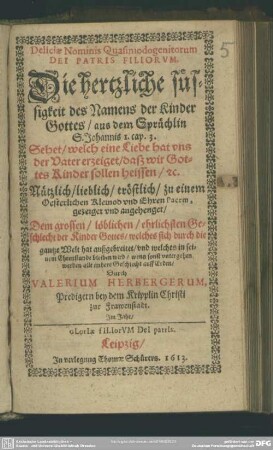 5
Deliciæ Nominis Quasimodogenitorum
DEI PATRIS FILIORVM.
Die hertzliche süs-
sigkeit des Namens der Kinder
Gottes / aus dem Sprüchlin
S. Johannis 1. cap. 3.
Sehet / welch eine Liebe hat vns
der Vater erzeiget / daß wir Got-
tes Kinder sollen heissen / ꝛc.
Nützlich / lieblich / tröstlich / zu einem
Oesterlichen Kleinod vnd Ehren
gezeiget vnd angehenget /
Dem grossen / löblichen / ehrlichsten Ge-
schlecht der Kinder Gottes / welches sich durch die
gantze Welt hat außgebreitet / vnd welches in
bleiben wird / wenn sonst
werden alle andere Geschlecht auff Erden /
Durch
VALERIUM HERBERGERUM,
Predigern bey dem Kripplin Christi
zur Frawenstadt.
Im Jahr /
gLorIæ fILIorVM DeI patrIs.
Leipzig /
In verlegung Thomæ Schürers. 1613.